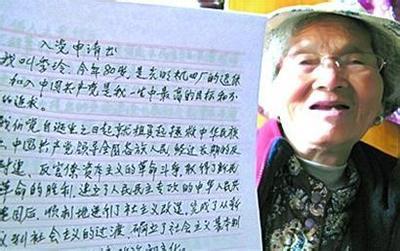 入党申请书
我叫李冷，今年80岁，是云的机四厂的退休
加入中国共产党是我一生中最高的目标和不
的追求。
我们党自诞生之日起就担负起振兴中华民族
中国共产党领导全国各族人民 经过长期的反
封建、反官僚资本主义的革命斗争，取得了新民
革命的胜利，建立了人民民主专政的中华人民共
建国后，顺利地进行了社主义改造，完成了从新
义到社会主义的过渡 确立了社会主义基本制